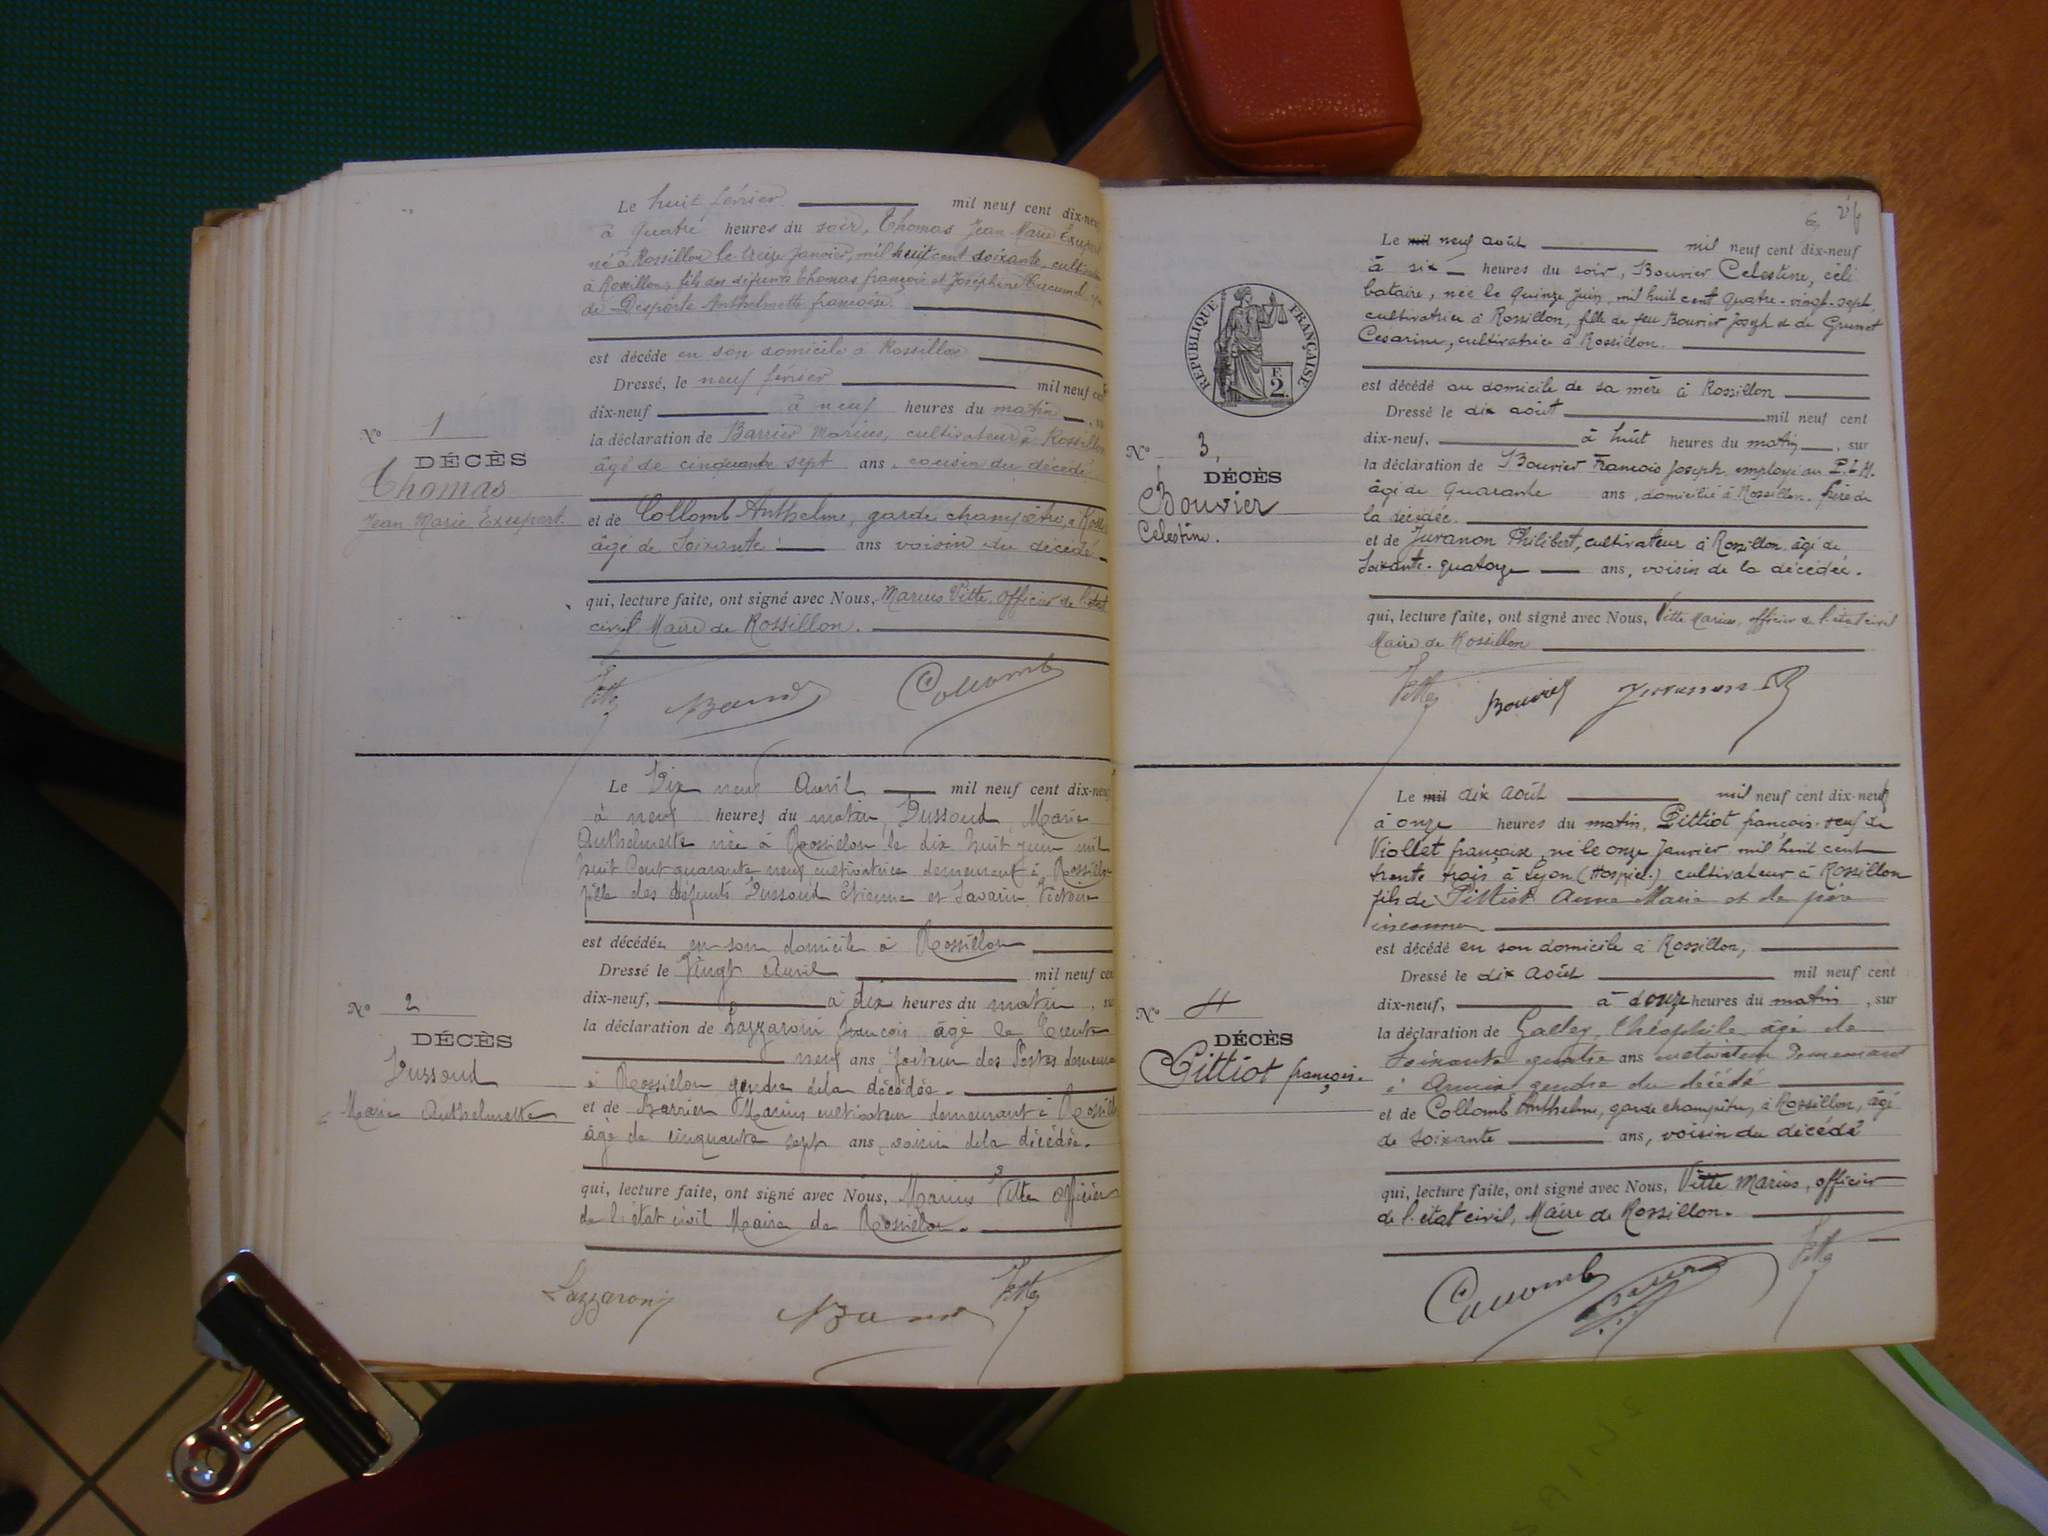 Le huit février mil neuf cent dix-neuf
à quatre heures du soir, Thomas Jean Marie Exupert
né à Rossillon le treize Janvier, mil huit cent soixante, cultivateur
à Rossillon, fils des défunts Thomas françois et Joséphine
de Desporte Anthelmette françoise.
est décédé en son domicile à Rossillon
Dressé, le neuf février mil neuf cent
dix-neuf à neuf heures du matin, sur
la déclaration de Barrier Marius, cultivateur à Rossillon
âgé de cinquante sept ans, cousin du décédé
et de Collomb Anthelme, garde champêtre, à Ross
âgé de soixante ans voisin du décédé
qui, lecture faite, ont signé avec Nous, Marius Vitte, officier de l'état
civil Maire de Rossillon.
N° 1
DÉCÈS
Thomas
Jean Marie Exupert.
Vitte Collomb
Le Dix neuf Avril mil neuf cent dix-neuf
à neuf heures du matin, Dussoud, Marie
Anthelmette née à Rossillon le dix huit juin mil
huit Cent quarante neuf cultivatrice demeurant à Rossillon
fille des défunts Dussoud Etienne et Savarin Victoire
est décédée en son domicile à Rossillon
Dressé le Vingt Avril mil neuf cent
dix-neuf, à dix heures du matin, sur
la déclaration de Lazzaroni François âgé de Trente
neuf ans, facteur des Postes demeurant
à Rossillon gendre de la décédée.
et de Barrier Marius cultivateur demeurant à Rossillon
âgé de cinquante sept ans, voisin de la décédée.
qui, lecture faite, ont signé avec Nous, Marius Vitte officier
de l'état civil Maire de Rossillon.
N° 2
DÉCÈS
Dussoud
Marie Anthelmette
Lazzaroni Vitte
Le mil neuf août mil neuf cent dix-neuf
à six heures du soir, Bouvier Celestine, céli
bataire, née le quinze Juin, mil huit cent quatre-vingt-sept
cultivatrice à Rossillon, fille de feu Bouvier Joseph et de Grumet
Césarine, cultivatrice à Rossillon.
est décédé au domicile de sa mère à Rossillon
Dressé le dix août mil neuf cent
dix-neuf, à huit heures du matin, sur
la déclaration de Bouvier François Joseph, employé au P.L.M.
âgé de quarante ans, domicilié à Rossillon, frère de
la décédée.
et de Juranon Philibert, cultivateur à Rossillon, âgé de
Soixante-quatorze ans, voisin de la décédée.
qui, lecture faite, ont signé avec Nous, Vitte Marius, officier de l'état civil
Maire de Rossillon
RÉPUBLIQUE FRANÇAISE
F.
2.
N° 3,
DÉCÈS
Bouvier
Celestine.
Vitte Bouvier Juranon
Le mil dix août mil neuf cent dix-neuf
à onze heures du matin, Pittiot françois veuf de
Viollet françoise, né le onze Janvier mil huit cent
trente trois à Lyon (Hospice) cultivateur à Rossillon
fils de Pittiot Anne Marie et de père
inconnu.
est décédé en son domicile à Rossillon,
Dressé le dix Août mil neuf cent
dix-neuf, à onze heures du matin, sur
la déclaration de Théophile âgé de
Soixante quatre ans cultivateur demeurant
à gendre du décédé
et de Collomb Anthelme, garde champêtre, à Rossillon, âgé
de soixante ans, voisin du décédé
qui, lecture faite, ont signé avec Nous, Vitte Marius, officier
de l'état civil, Maire de Rossillon.
N° 4
DÉCÈS
Pittiot françois.
Collomb Vitte